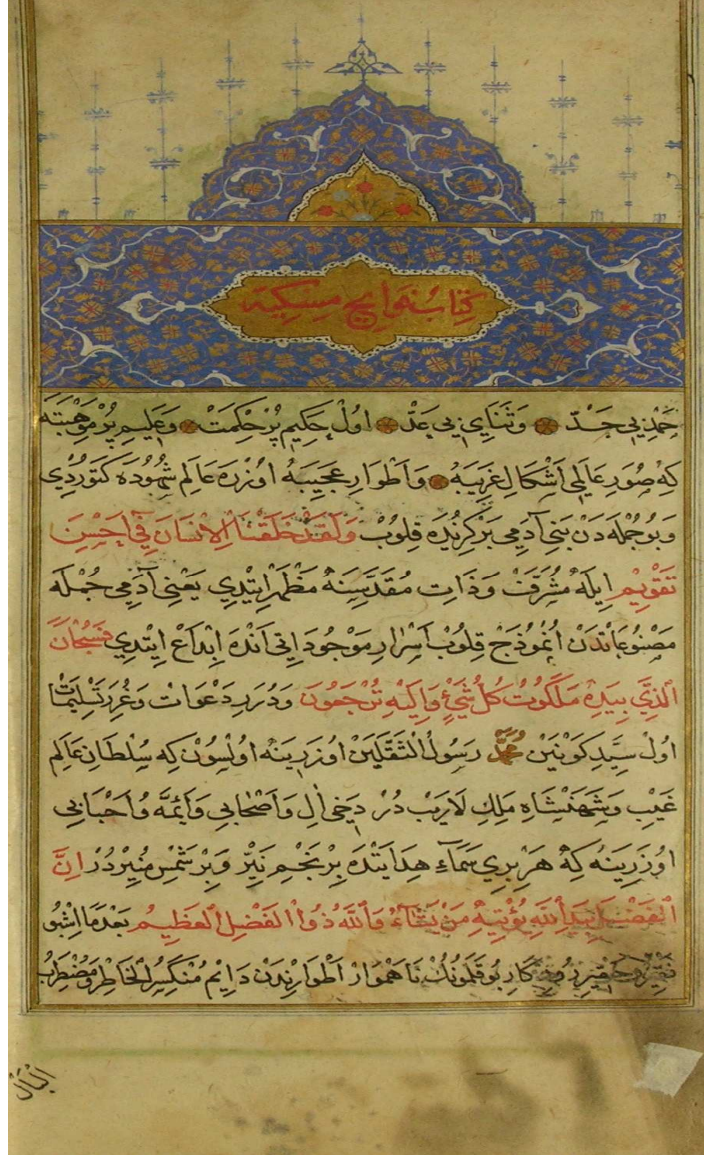 كتاب نوايح مسكية
حمد بى حدّ وثناى بى عدّ اول حكيم پر حكمت وعليم پر موهبته
كه صور عالمى اشكال غريبه واطوار عجيبه اوزره عالم شهوده كتوردى
وبو جمله دن بنى آدمى بركزيده قلوب ولقد خلقنا الانسان فى احسن
تقويم ايله مشرف وذات مقدسينه مظهر ايتدى يعنى آدمى جمله
مصنوعاتدن انموذج قلوب اسرار موجوداتى آنده ابداع ايتدى فسبحان
الذى بيده ملكوت كل شئ واليه ترجعون ودرر دعوات وغرر تسليمات
اول سيد كونين محمد رسول الثقلين اوزرينه اولسون كه سلطان عالم
غيب وشهنشاه ملك لاريب در دخى آل واصحابى وائمه واحبابى
اوزرينه كه هر برى سماء هدايتده بر نجم نير وبر شمس منيردر ان
الفضل بيد الله يؤتيه من يشاء والله ذو الفضل العظيم بعدما اشبو
فقير حقير روزكار بوقلمونك ناهموار اطوارندن دايم منكسر الخاطر ومضطرب
البال